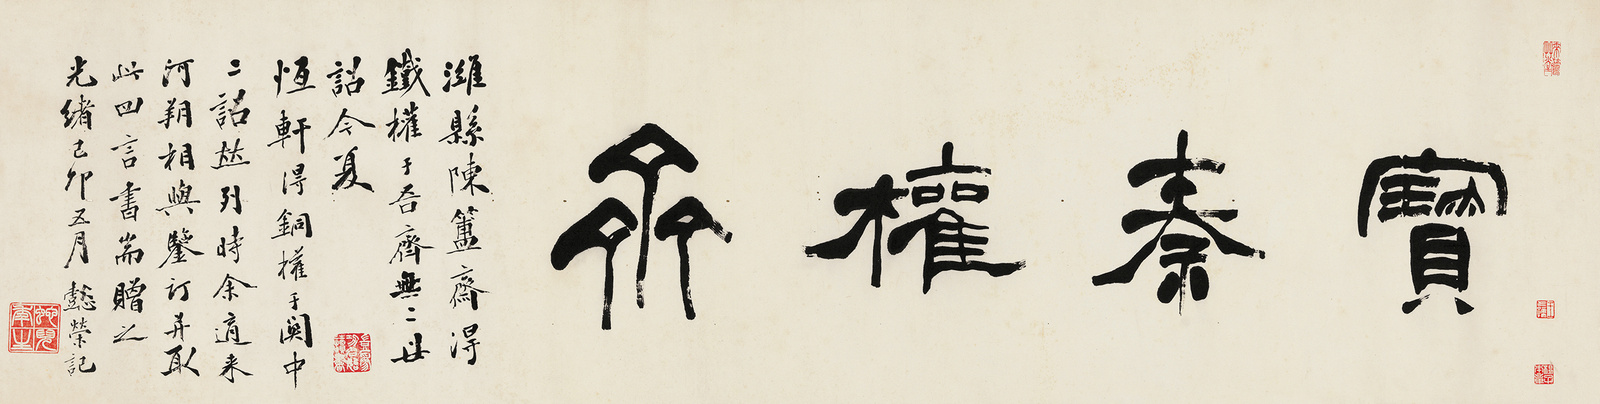 寶秦權齊
濰縣陳簠齋得
鐵權于吾齊無二世
詔今夏
恆軒得銅權于關中
二詔竝列時余適来
河朔相與鑒訂并取
此四言書耑贈之
光緒己卯五月懿榮記